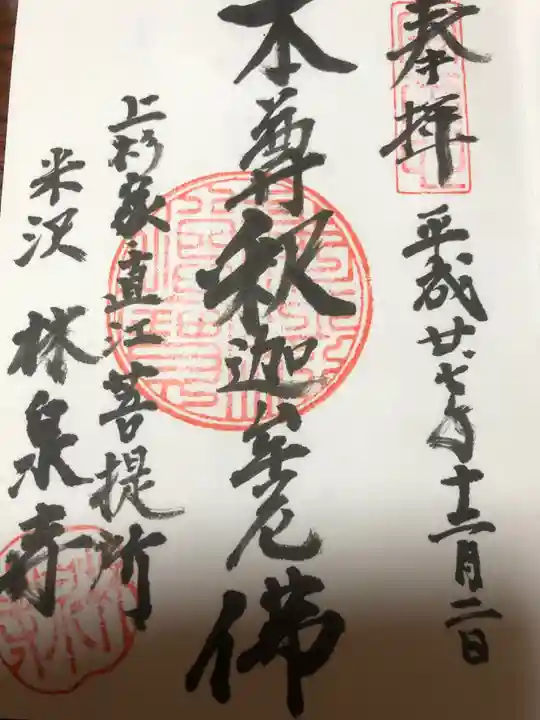 奉拝
平成廿七年十二月二日
本尊釈迦牟尼佛
上杉家・直江菩提所
米沢 林泉寺